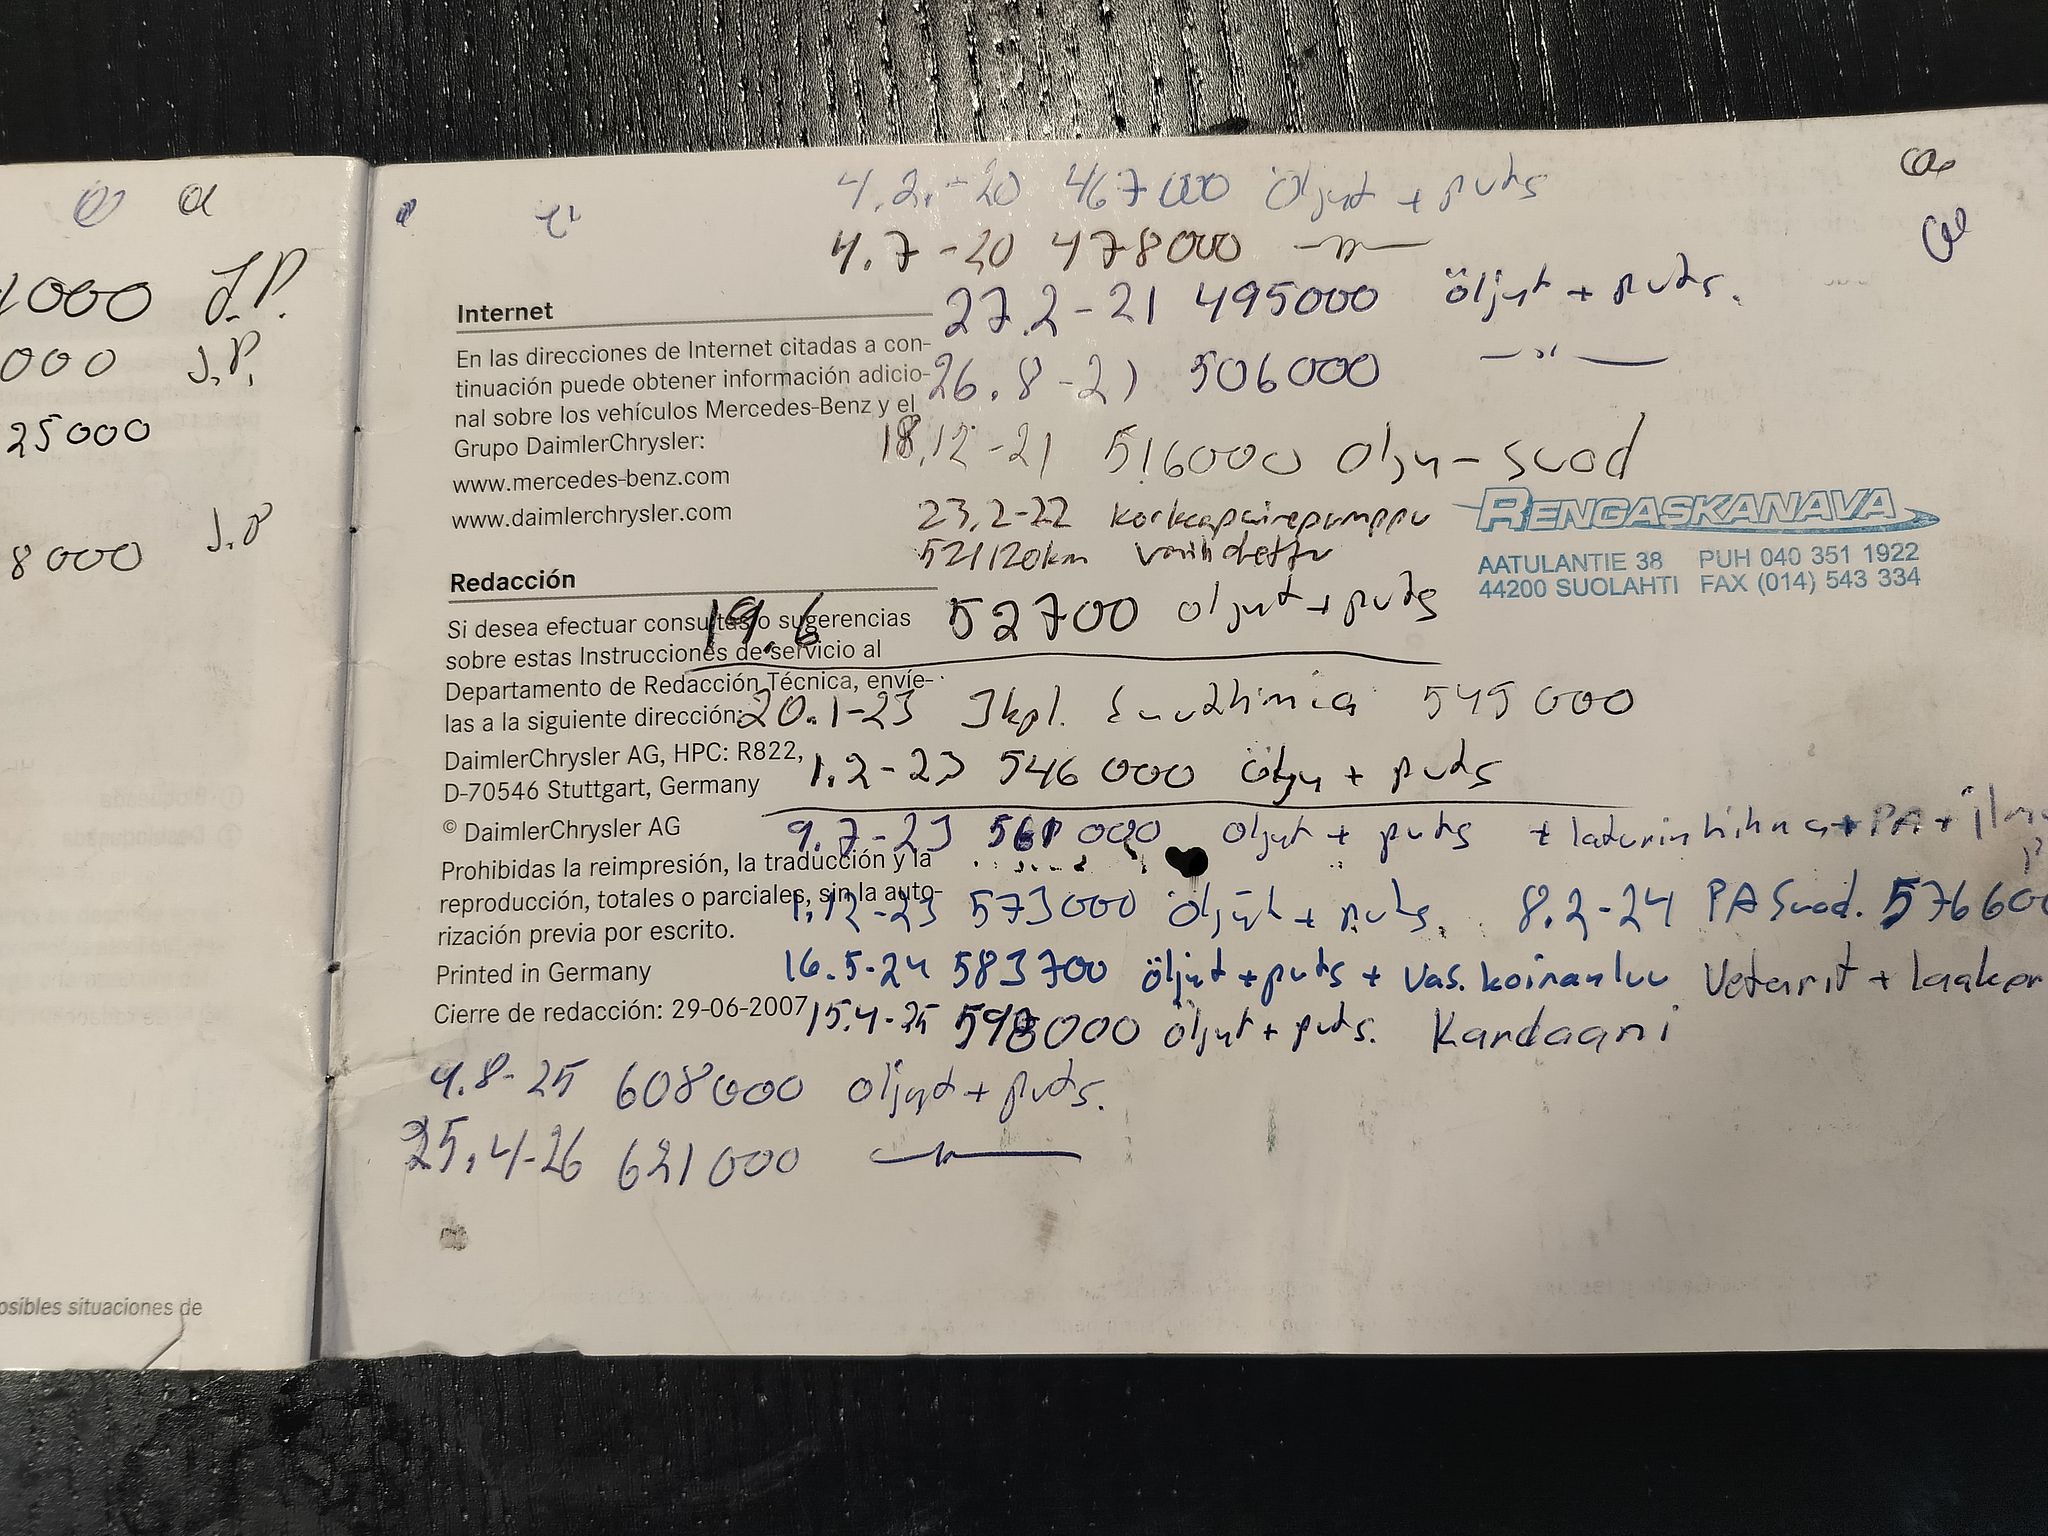 1000 J.P.
000 J.P.
25000
8000 J.P
osibles situaciones de
4.2.-20 467000 Öljyt + puts
4.7-20 478000 —"—
27.2-21 495000 öljyt + puts.
26.8-21 506000 —"—
18.12-21 516000 Öljy-suod
23.2-22 korkeapainepumppu
521120km vaihdettu
RENGASKANAVA
AATULANTIE 38 PUH 040 351 1922
44200 SUOLAHTI FAX (014) 543 334
19.6 52700 öljyt + puts
20.1-23 3kpl. 545000
1.2-23 546000 öljy + puts
9.7-23 561000 öljyt + puts + laturinhihna + PA +
1.12-23 573000 öljyt + puts. 8.2-24 PA Suod. 576600
16.5-24 583700 öljyt + puts + vas. koiranluu Vetarit + laaker
15.4-25 598000 öljyt + puts. Kardaani
4.8-25 608000 öljyt + puts.
25.4-26 621000 —"—
Internet
En las direcciones de Internet citadas a con-
tinuación puede obtener información adicio-
nal sobre los vehículos Mercedes-Benz y el
Grupo DaimlerChrysler:
www.mercedes-benz.com
www.daimlerchrysler.com
Redacción
Si desea efectuar consultas o sugerencias
sobre estas Instrucciones de servicio al
Departamento de Redacción Técnica, envíe-
las a la siguiente dirección:
DaimlerChrysler AG, HPC: R822,
D-70546 Stuttgart, Germany
© DaimlerChrysler AG
Prohibidas la reimpresión, la traducción y la
reproducción, totales o parciales, sin la auto-
rización previa por escrito.
Printed in Germany
Cierre de redacción: 29-06-2007